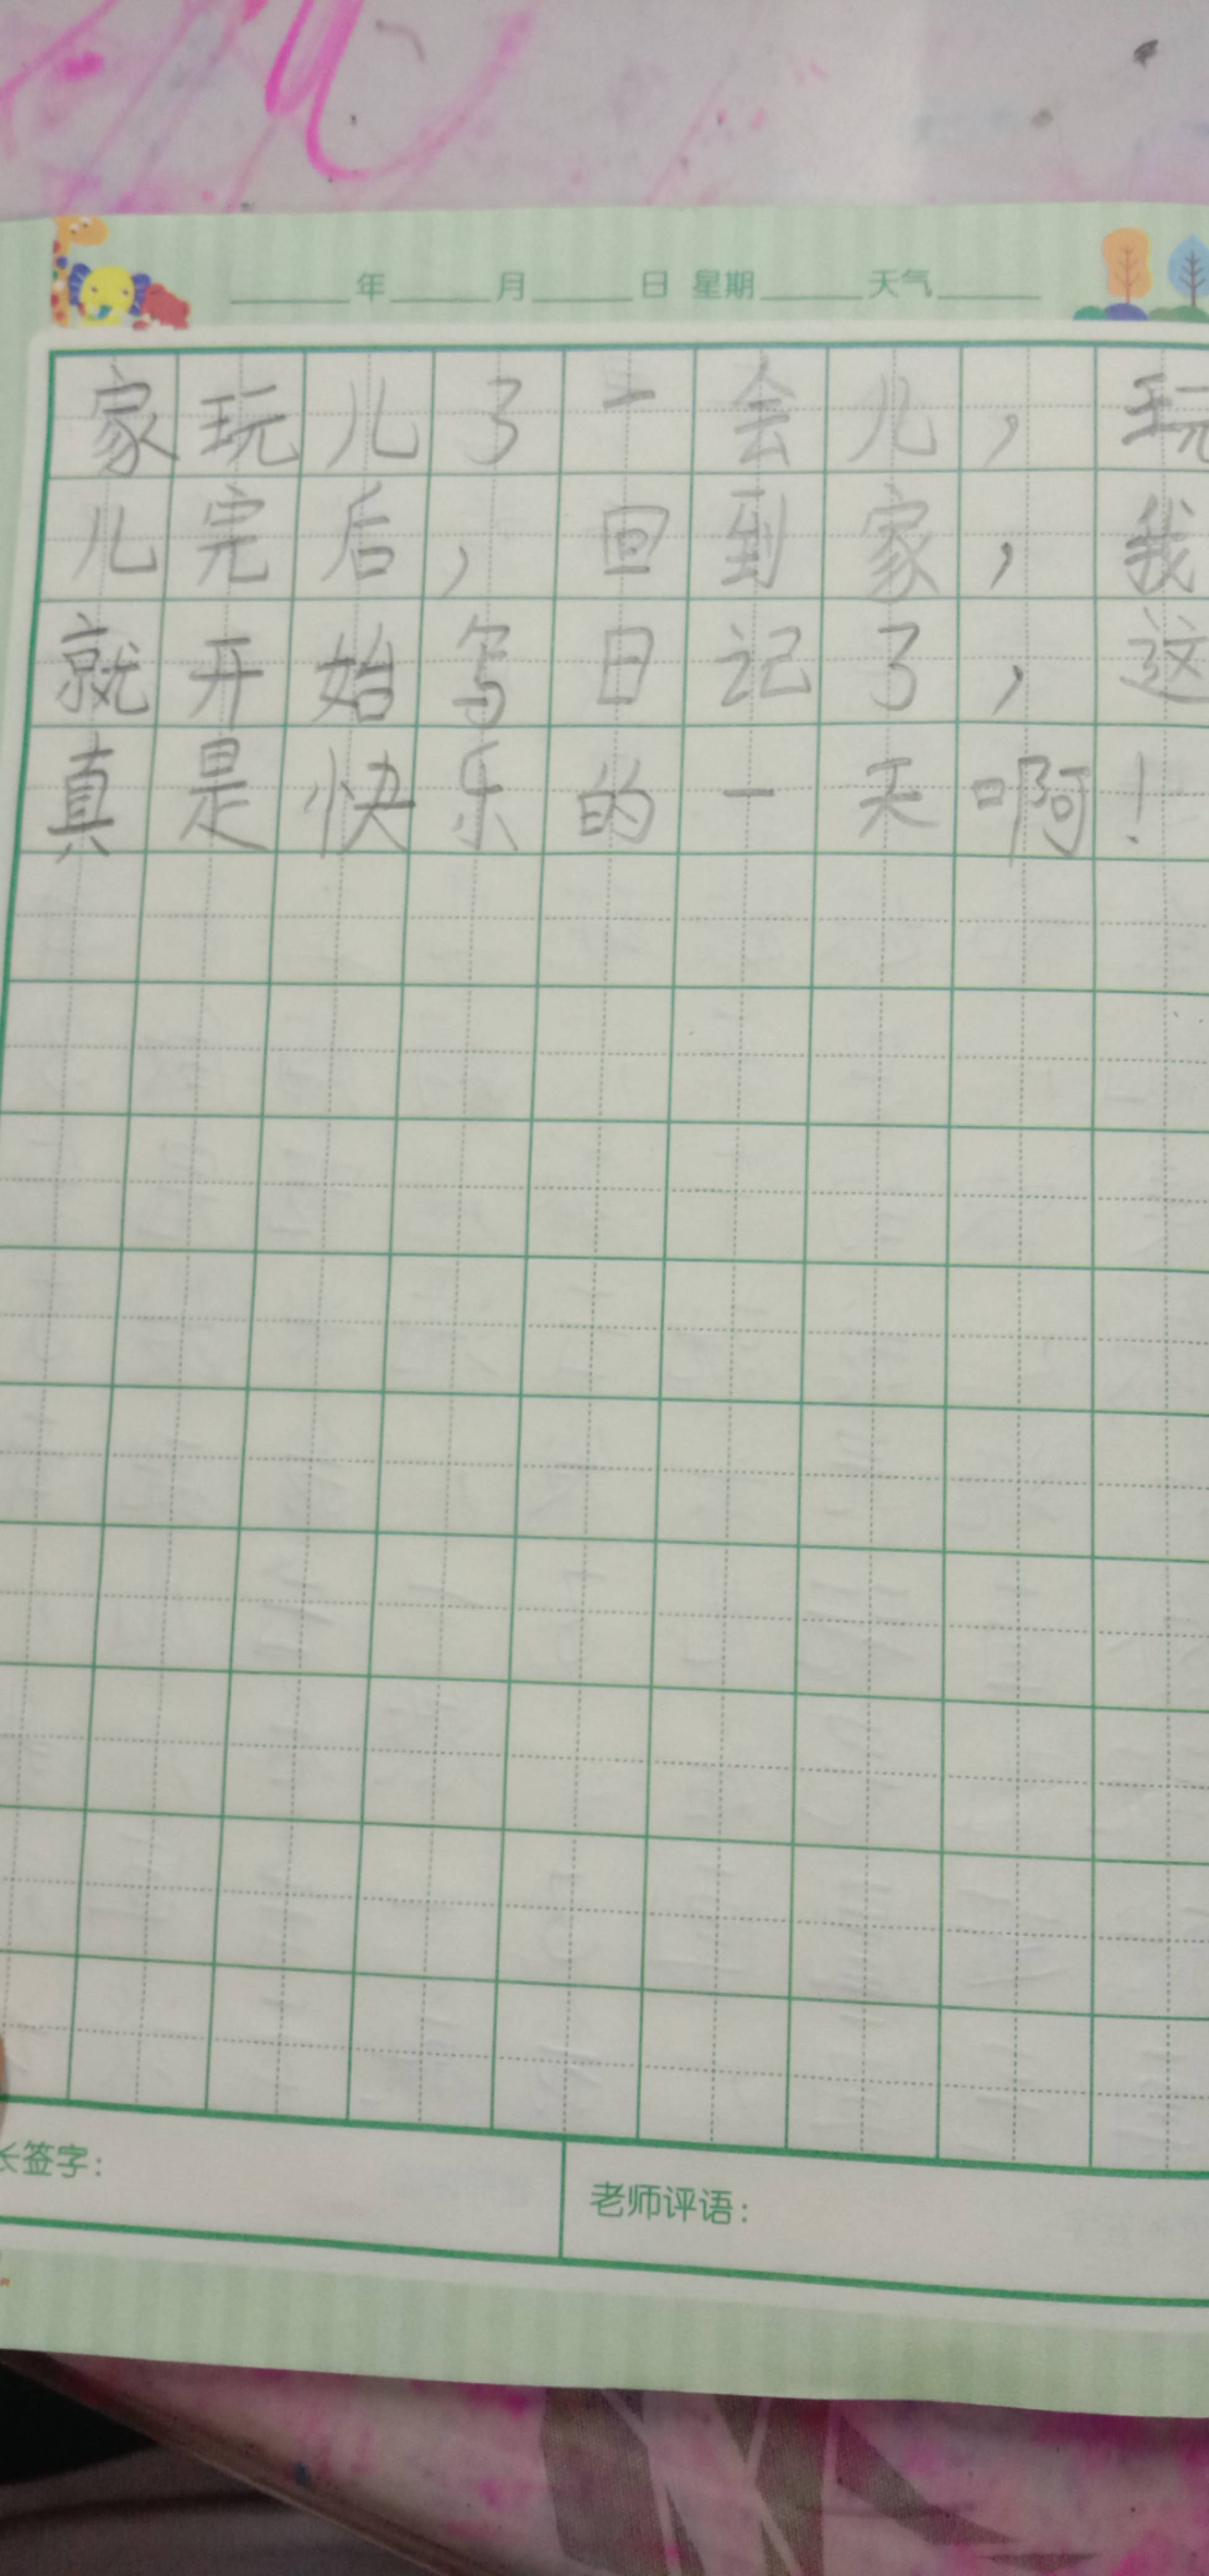 年 月 日 星期 天气
家玩儿了一会儿，玩
儿完后，回到家，我
就开始写日记了，这
真是快乐的一天啊！
长签字：
老师评语：